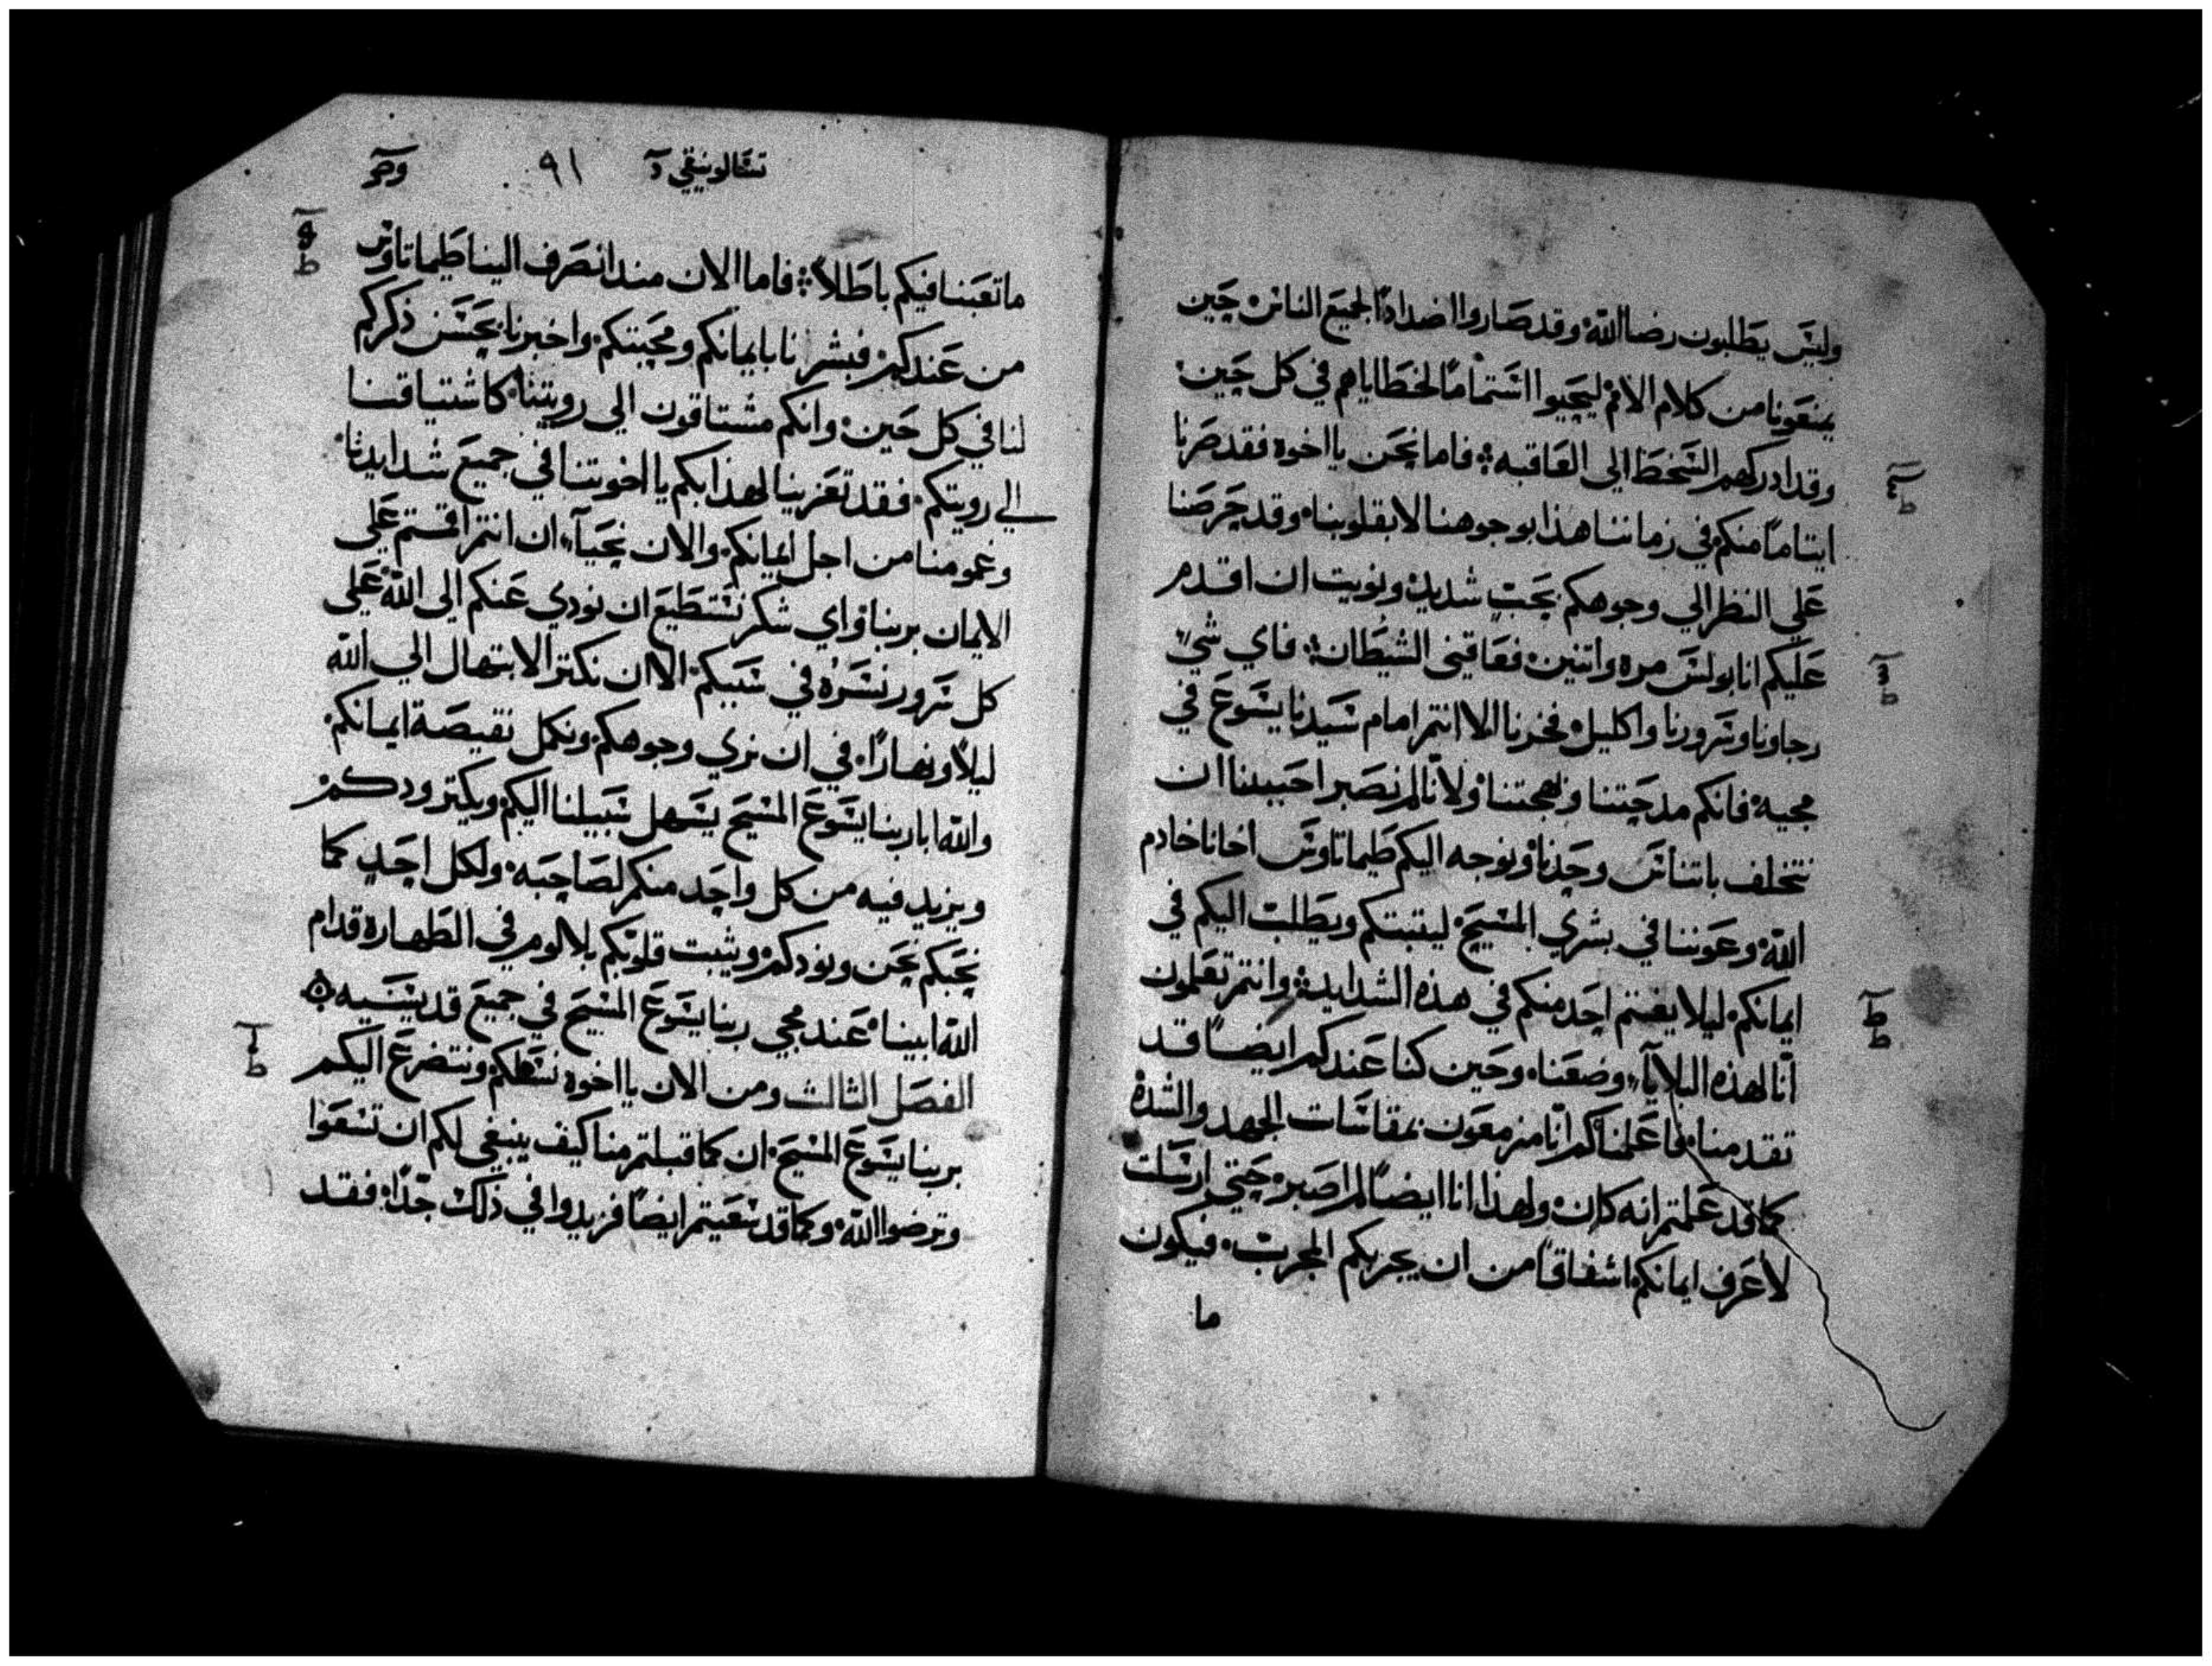 وليس يطلبون رضا الله وقد صاروا اضدادًا لجميع الناس حين
يمنعونا من كلام الامم ليحيوا استتمامًا لخطاياهم في كل حين
وقد ادركهم السخط الي العاقبه فاما نحن يا اخوه فقد صرنا
ايتامًا منكم في زماننا هذا بوجوهنا لا بقلوبنا وقد حرصنا
علي النظر الي وجوهكم بحب شديد ونويت ان اقدم
عليكم انا بولس مره واتنين فعاقني الشيطان فاي شي
رجاونا وسرورنا واكليل فخرنا الا انتم امام سيدنا يسوع في
مجيه فانكم مدحتنا وبهجتنا ولانّا لم نصبر احببنا ان
نتخلف باتناس وحدنا ونوجه اليكم طيماتاوس اخانا خادم
الله وعوننا في بشري المسيح ليثبتكم ويطلب اليكم في
ايمانكم ليلا يغتم احد منكم في هذه الشدايد وانتم تعلمون
انّا لهذه البلايآ وضعنا وحين كنا عندكم ايضًا قد
تقدمنا فاعلمناكم انّا مزمعون بمقاسات الجهد والشده
كما قد علمتم انه كان ولهذا انا ايضًا لم اصبر حتي ارسلت
لاعرف ايمانكم اشفاقًا من ان يجربكم المجرب فيكون
ما
تسالونيقي ٩١
ما تعبنا فيكم باطلاً فاما الان مند انصرف الينا طيماتاوس
من عندكم فبشرنا بايمانكم ومحبتكم واخبرنا بحسن ذكركم
لنا في كل حين وانكم مشتاقون الي رويتنا كاشتياقنا
الي رويتكم فقد تعزينا لهذا بكم يا اخوتنا في جميع شدايدنا
وغمومنا من اجل ايمانكم والان نحيآ ان انتم اقمتم علي
الايمان بربنا واي شكر نستطيع ان نودي عنكم الي الله علي
كل سرور نسره في سببكم الا ان نكتر الابتهال الي الله
ليلاً ونهارًا في ان نري وجوهكم ونكمل نقيصة ايمانكم
والله ابا ربنا يسوع المسيح يسهل سبيلنا اليكم ويكتر ودكم
ويزيد فيه من كل واحد منكم لصاحبه ولكل احد كما
نحبكم نحن ونودكم ويثبت قلوبكم بلا لوم في الطهاره قدام
الله ابينا عند مجي ربنا يسوع المسيح في جميع قديسيه
الفصل الثالث ومن الان يا اخوه نسلكم ونتضرع اليكم
بربنا يسوع المسيح ان كما قبلتم منا كيف ينبغي لكم ان تسعوا
وترضوا الله وكما قد سعيتم ايضًا فزيدوا في ذلك جدًا فقد